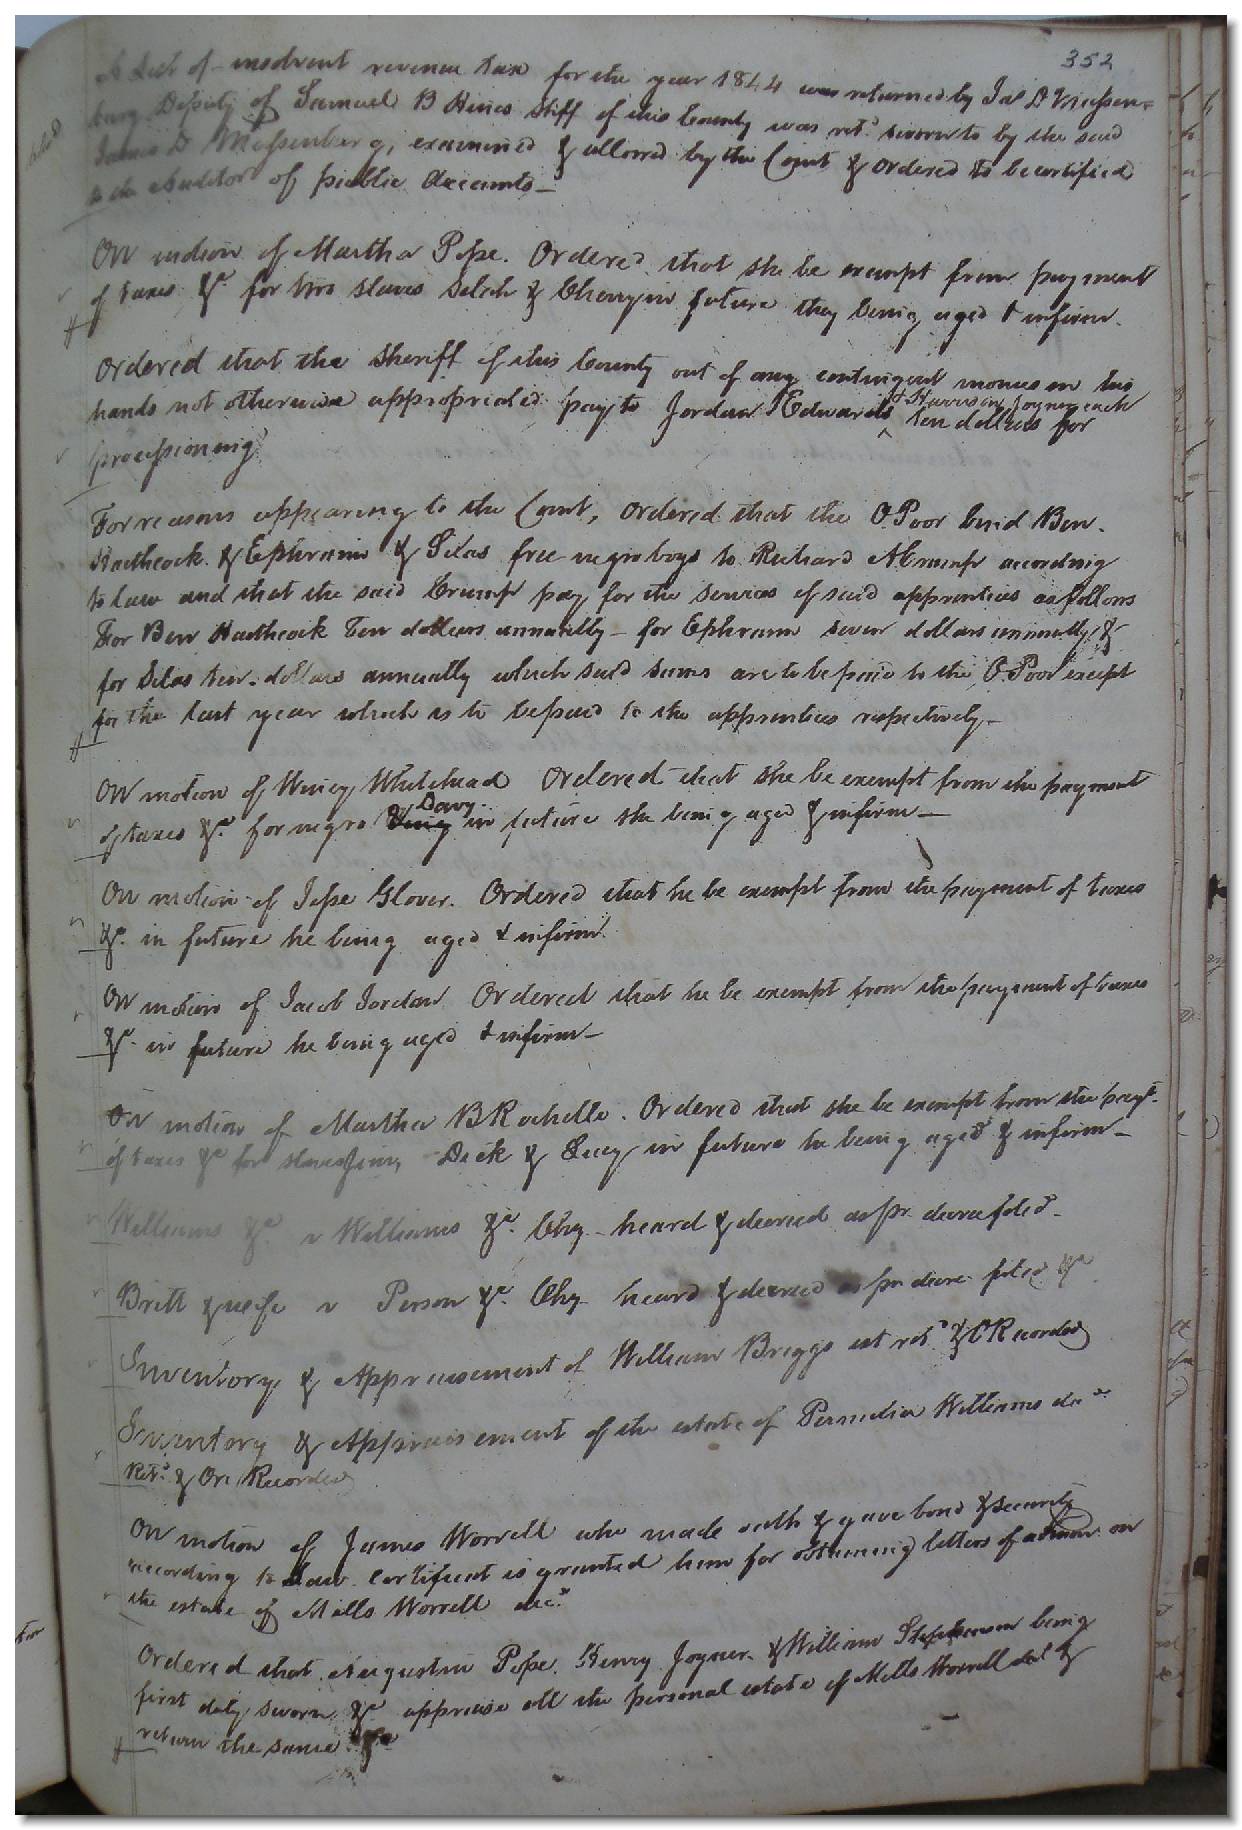 352
A List of insolvent revenue tax for the year 1844 was returned by Jas D Massen=
burg Deputy of Samuel B Hines Shff of this County was retd sworn to by the said
James D Massenburg, examined & allowed by the Court & ordered to be certified
to the Auditor of public Accounts—
On motion of Martha Pope. Ordered that she be exempt from payment
of taxes &c for two slaves Selah & Cherry in future they being aged & infirm.
Ordered that the Sheriff of this County out of any contingent monies in his
hands not otherwise appropriated pay to Jordan Edwards & Harrison Joyner each ten dollars for
processioning
For reasons appearing to the Court, ordered that the O. Poor bind Ben
Haithcock & Ephraim & Silas free negro boys to Richard A Crump according
to law and that the said Crump pay for the services of said apprentices as follows
For Ben Haithcock Ten dollars annually - for Ephraim seven dollars annually &
for Silas ten dollars annually which said sums are to be paid to the O. Poor except
for the last year which is to be paid to the apprentices respectively—
On motion of Winey Whitehead Ordered that she be exempt from the payment
of taxes &c for negro Davy in future she being aged & infirm—
On motion of Jesse Glover. Ordered that he be exempt from the payment of taxes
&c in future he being aged & infirm
On motion of Jacob Jordan Ordered that he be exempt from the payment of taxes
&c in future he being aged & infirm—
On motion of Martha B Rochelle. Ordered that she be exempt from the payt
of taxes &c for slaves Dick & Lucy in future he being aged & infirm—
Williams &c v Williams &c Chy heard & decreed as pr decree filed—
Britt & wife v Person &c Chy heard & decreed as pr decree filed &c
Inventory & Appraisement of William Briggs est retd & O Recorded
Inventory & Appraisement of the estate of Permelia Williams decd
Retd & Ord Recorded
On motion of James Worrell who made oath & gave bond & security
according to Law certificate is granted him for obtaining letters of admon on
the estate of Mills Worrell decd
Ordered that Augustin Pope, Henry Joyner & William Stephenson being
first duly sworn &c appraise all the personal estate of Mills Worrell decd &
return the same &c